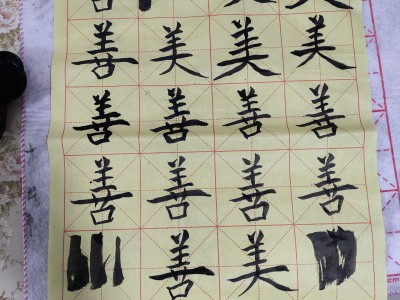 善美美美
善善善善
善善善善
善美